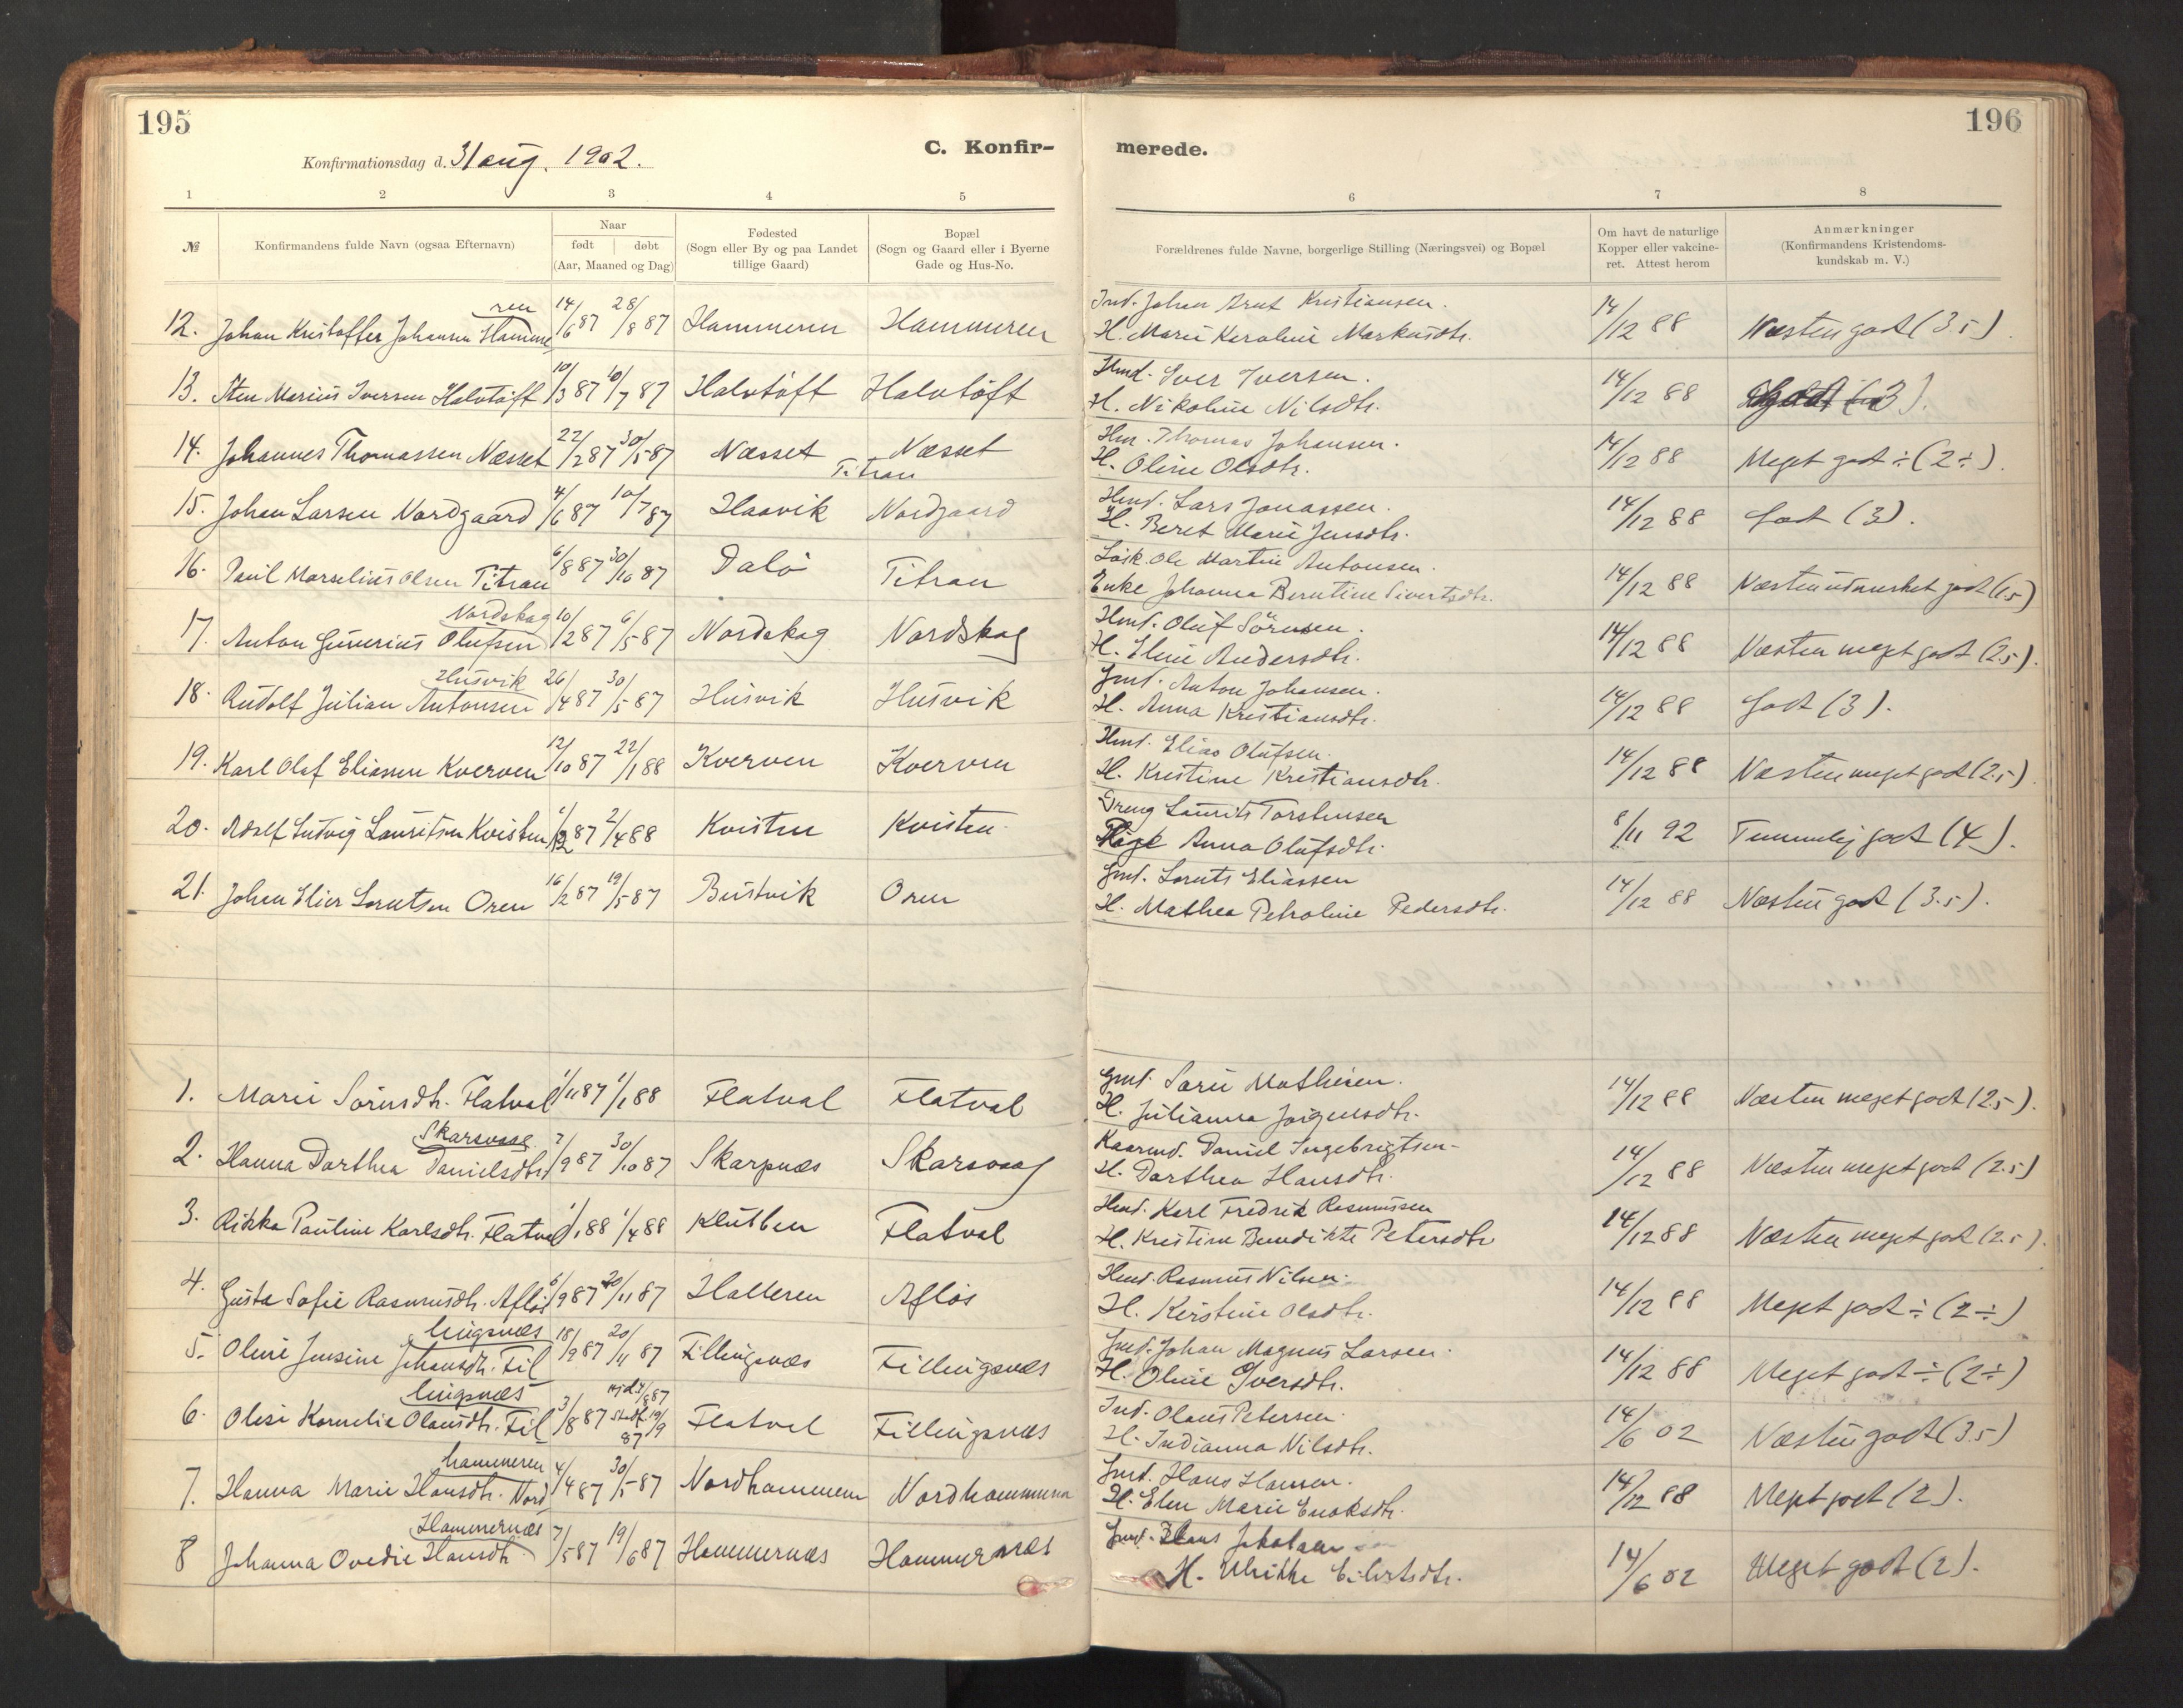 195
196
C. Konfir-
merede.
Konfirmationsdag d. 31 aug. 1902.
1 2 3 4 5 6 7 8
№ Konfirmandens fulde Navn (ogsaa Efternavn)
Naar
født døbt
(Aar, Maaned og Dag)
Fødested
(Sogn eller By og paa Landet
tillige Gaard)
Bopæl
(Sogn og Gaard eller i Byerne
Gade og Hus-No.
Forældrenes fulde Navne, borgerlige Stilling (Næringsvei) og Bopæl
Om havt de naturlige
Kopper eller vakcine-
ret. Attest herom
Anmærkninger
(Konfirmandens Kristendoms-
kundskab m. V.)
ren Ind. Johan Arnt Kristiansen.
12. Johan Kristoffer Johansen Hamme 14/6 87 28/8 87 Hammeren Hammeren H. Marie Karoline Markusdtr. 14/12 88 Næsten godt (3.5).
Hmd. Iver Iversen.
13. Sten Marius Iversen Halvtöft 10/3 87 10/7 87 Halvtöft Halvtöft H. Nikoline Nilsdtr. 14/12 88 (3).
Hm. Thomas Johansen.
14. Johannes Thomassen Næsset 22/2 87 30/5 87 Næsset Næsset H. Oline Olsdtr. 14/12 88 Meget godt ÷ (2÷).
Titran
Hmd. Lars Jonassen.
15. Johan Larsen Nordgaard 4/6 87 10/7 87 Haavik Nordgaard H. Beret Marie Jensdtr. 14/12 88 Godt (3).
Løsk. Ole Martin Antonsen.
16. Paul Marselius Olsen Titran 6/8 87 30/10 87 Dalö Titran Enke Johanna Berntine Sivertsdtr. 14/12 88 Næsten udmerket godt (1.5)
Nordskag Hmd. Oluf Sörensen.
17. Anton Gunerius Olufsen 10/2 87 6/5 87 Nordskag Nordskag H. Eline Andersdtr. 14/12 88 Næsten meget godt (2.5).
Husvik Gmd. Anton Johansen.
18. Rudolf Julian Antonsen 26/4 87 30/5 87 Husvik Husvik H. Anna Kristiansdtr. 14/12 88 Godt (3).
Hmd. Elias Olufsen.
19. Karl Olaf Eliassen Kverven 12/10 87 22/1 88 Kverven Kverven H. Kristine Kristiansdtr. 14/12 88 Næsten meget godt (2.5)
Dreng Laurits Torstensen
20. Adolf Ludvig Lauritsen Kvisten 87 2/4 88 Kvisten Kvisten. Pige Anna Olufsdtr. 8/11 92 Temmelig godt (4).
Gmd. Lornts Eliassen
21. Johan Elier Lorntsen Oren 16/2 87 19/5 87 Bustvik Oren H. Mathea Petroline Pedersdtr. 14/12 88 Næsten godt (3.5).
Gmd. Sören Mathisen.
1. Marie Sörensdtr. Flatval 1/11 87 1/1 88 Flatval Flatval H. Julianna Jörgensdtr. 14/12 88 Næsten meget godt (2.5).
Skarsvaag Kaarmd. Daniel Ingebrigtsen
2. Hanna Dorthea Danielsdtr. 7/9 87 30/10 87 Skarpnæs Skarsvaag H. Dorthea Hansdtr. 14/12 88 Næsten meget godt (2.5)
Hmd. Karl Fredrik Rasmussen
3. Rikka Pauline Karlsdtr. Flatval 1/1 88 1/4 88 Klubben Flatval H. Kristine Bendikte Petersdtr 14/12 88 Næsten meget godt (2.5).
Hmd. Rasmus Nilsen.
4. Gusta Sofie Rasmusdtr. Aflös 6/9 87 20/11 87 Halleren Aflös H. Kirstine Olsdtr. 14/12 88 Meget godt ÷ (2÷)
lingsnæs Gmd. Johan Magnus Larsen.
5. Oline Jensine Johansdtr. Fil 18/9 87 20/11 87 Fillingsnæs Fillingsnæs H. Oline Iversdtr. 14/12 88 Meget godt ÷ (2÷)
lingsnæs Hjd. 4/8 87 Ind. Olaus Petersen.
6. Olise Kornelie Olausdtr. Fil 3/8 87 Stadf. 19/9 87 Flatval Fillingsnæs H. Indianna Nilsdtr. 14/6 02 Næsten godt (3.5)
hammeren Gmd. Hans Hansen.
7. Hanna Marie Hansdtr. Nord 4/4 87 30/5 87 Nordhammeren Nordhammeren H. Elen Marie Enoksdtr. 14/12 88 Meget godt (2).
Hammernæs Gmd. Hans Jakobsen
8 Johanna Ovedie Hansdtr. 7/5 87 19/6 87 Hammernæs Hammernæs H. Ulrikke Eilertsdtr. 14/6 02 Meget godt (2).